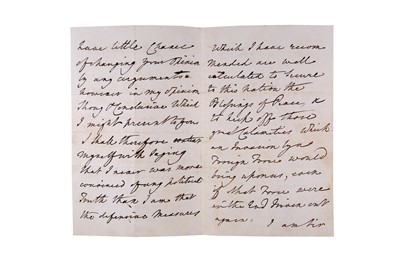 have little Chance
of changing your Opinion
by any arguments
however in my opinion
strong & Conclusive Which
I might present to you
I shall therefore
myself with saying
that I never was more
convinced of any political
Truth than I am that
the defensive Measures
Which I have recom
mended are well
calculated to secure
to this nation the
Blessings of Peace, &
to keep off those
great Calamities which
an Invasion by a
Foreign Force would
bring upon us, even
if that Force were
in the End driven out
again. I am Sir